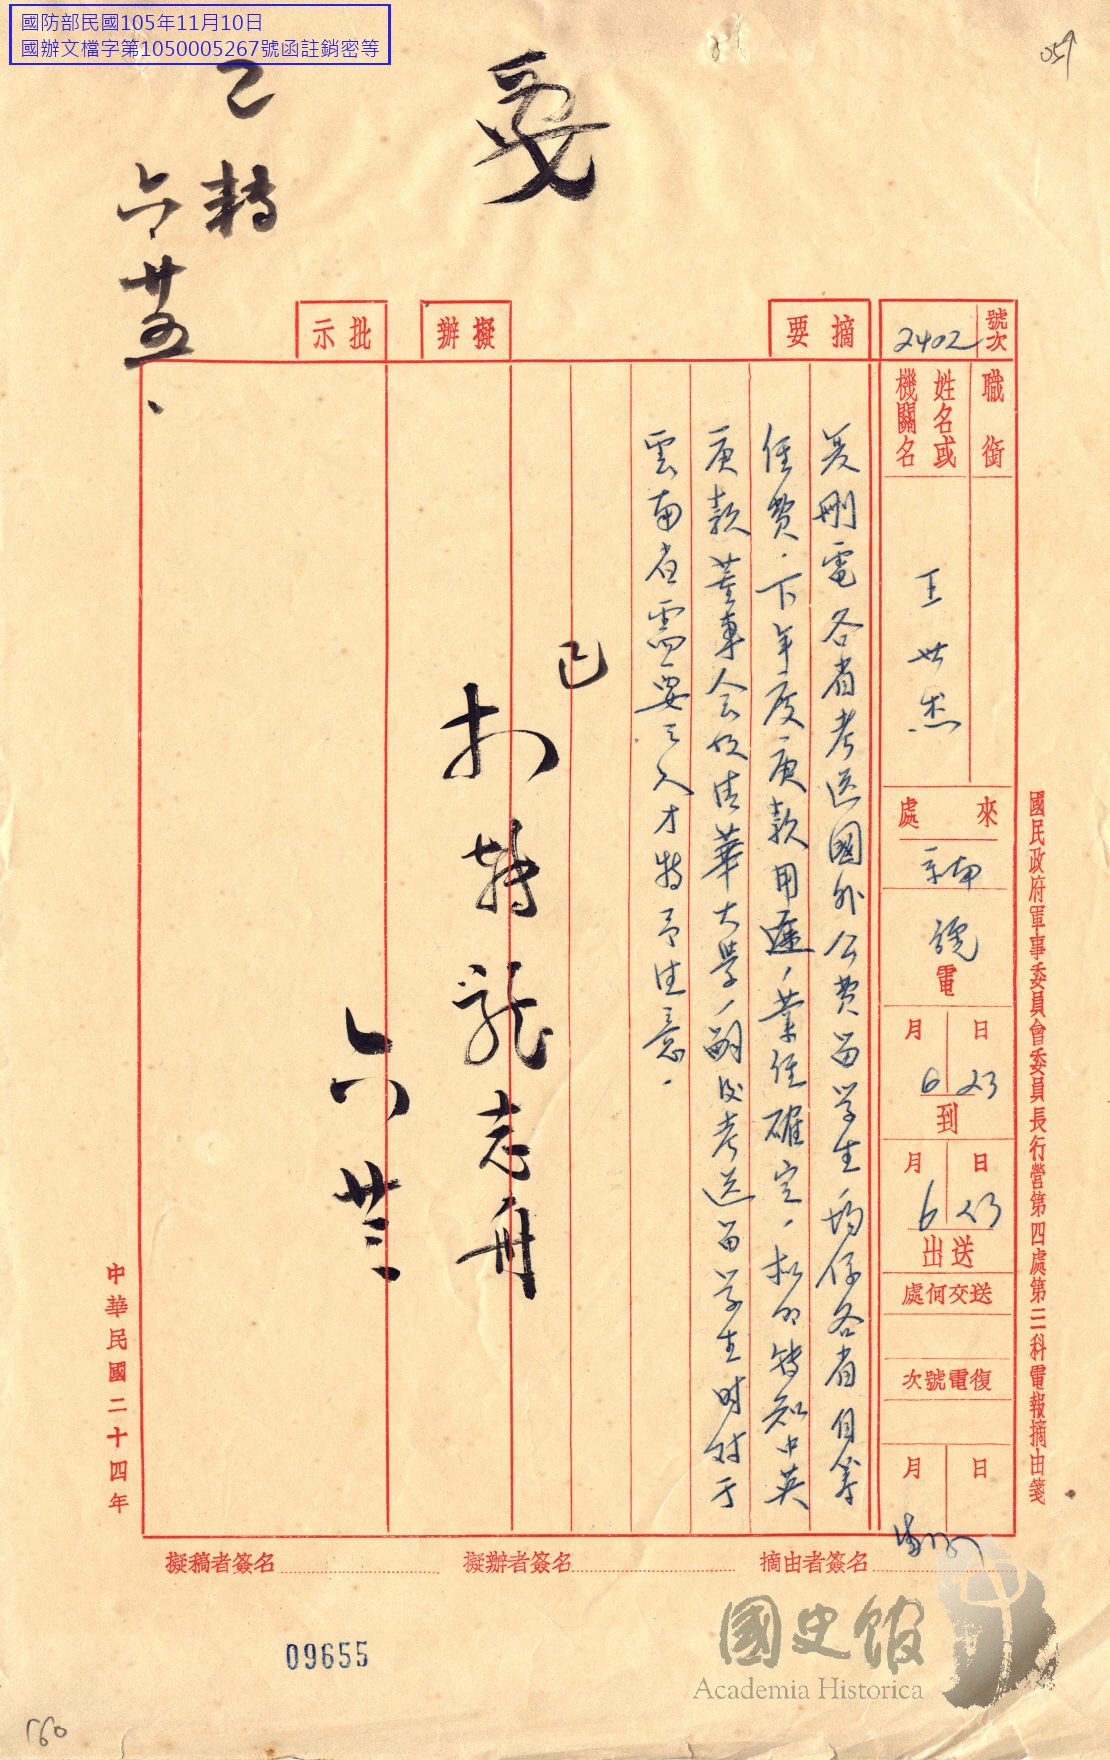 國防部民國105年11月10日
國辦文檔字第1050005267號函註銷密等
閱
已轉
六廿五、
號次
2402
職銜
姓名或機關名
王世杰
來處
京南
號電
月6日23到
月6日23送出
送交何處
復電號次
月日
摘要
刪電各省考送國外公費留学生均係各省自籌
經費.下年度庚款用途、業經確定、擬即轉知中英
庚款董事会及清華大學、嗣後考送留学生時对于
雲南省需要之人才特予注意.
擬辦
已
批示
六廿三
國民政府軍事委員會委員長行營第四處第三科電報摘由箋
中華民國二十四年
摘由者簽名
擬辦者簽名
擬稿者簽名
09655
160
國史館
Academia Historica